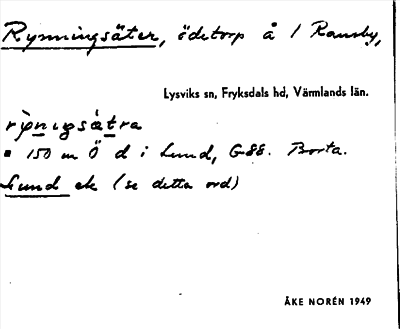 Rynningsäter, ödetorp å 1 Ransby,
Lysviks sn, Fryksdals hd, Värmlands län.
rỳnıgsàtra
▪ 150 m Ö d i Lund, G88. Borta.
Lund ek (se detta ord)
ÅKE NORÉN 1949